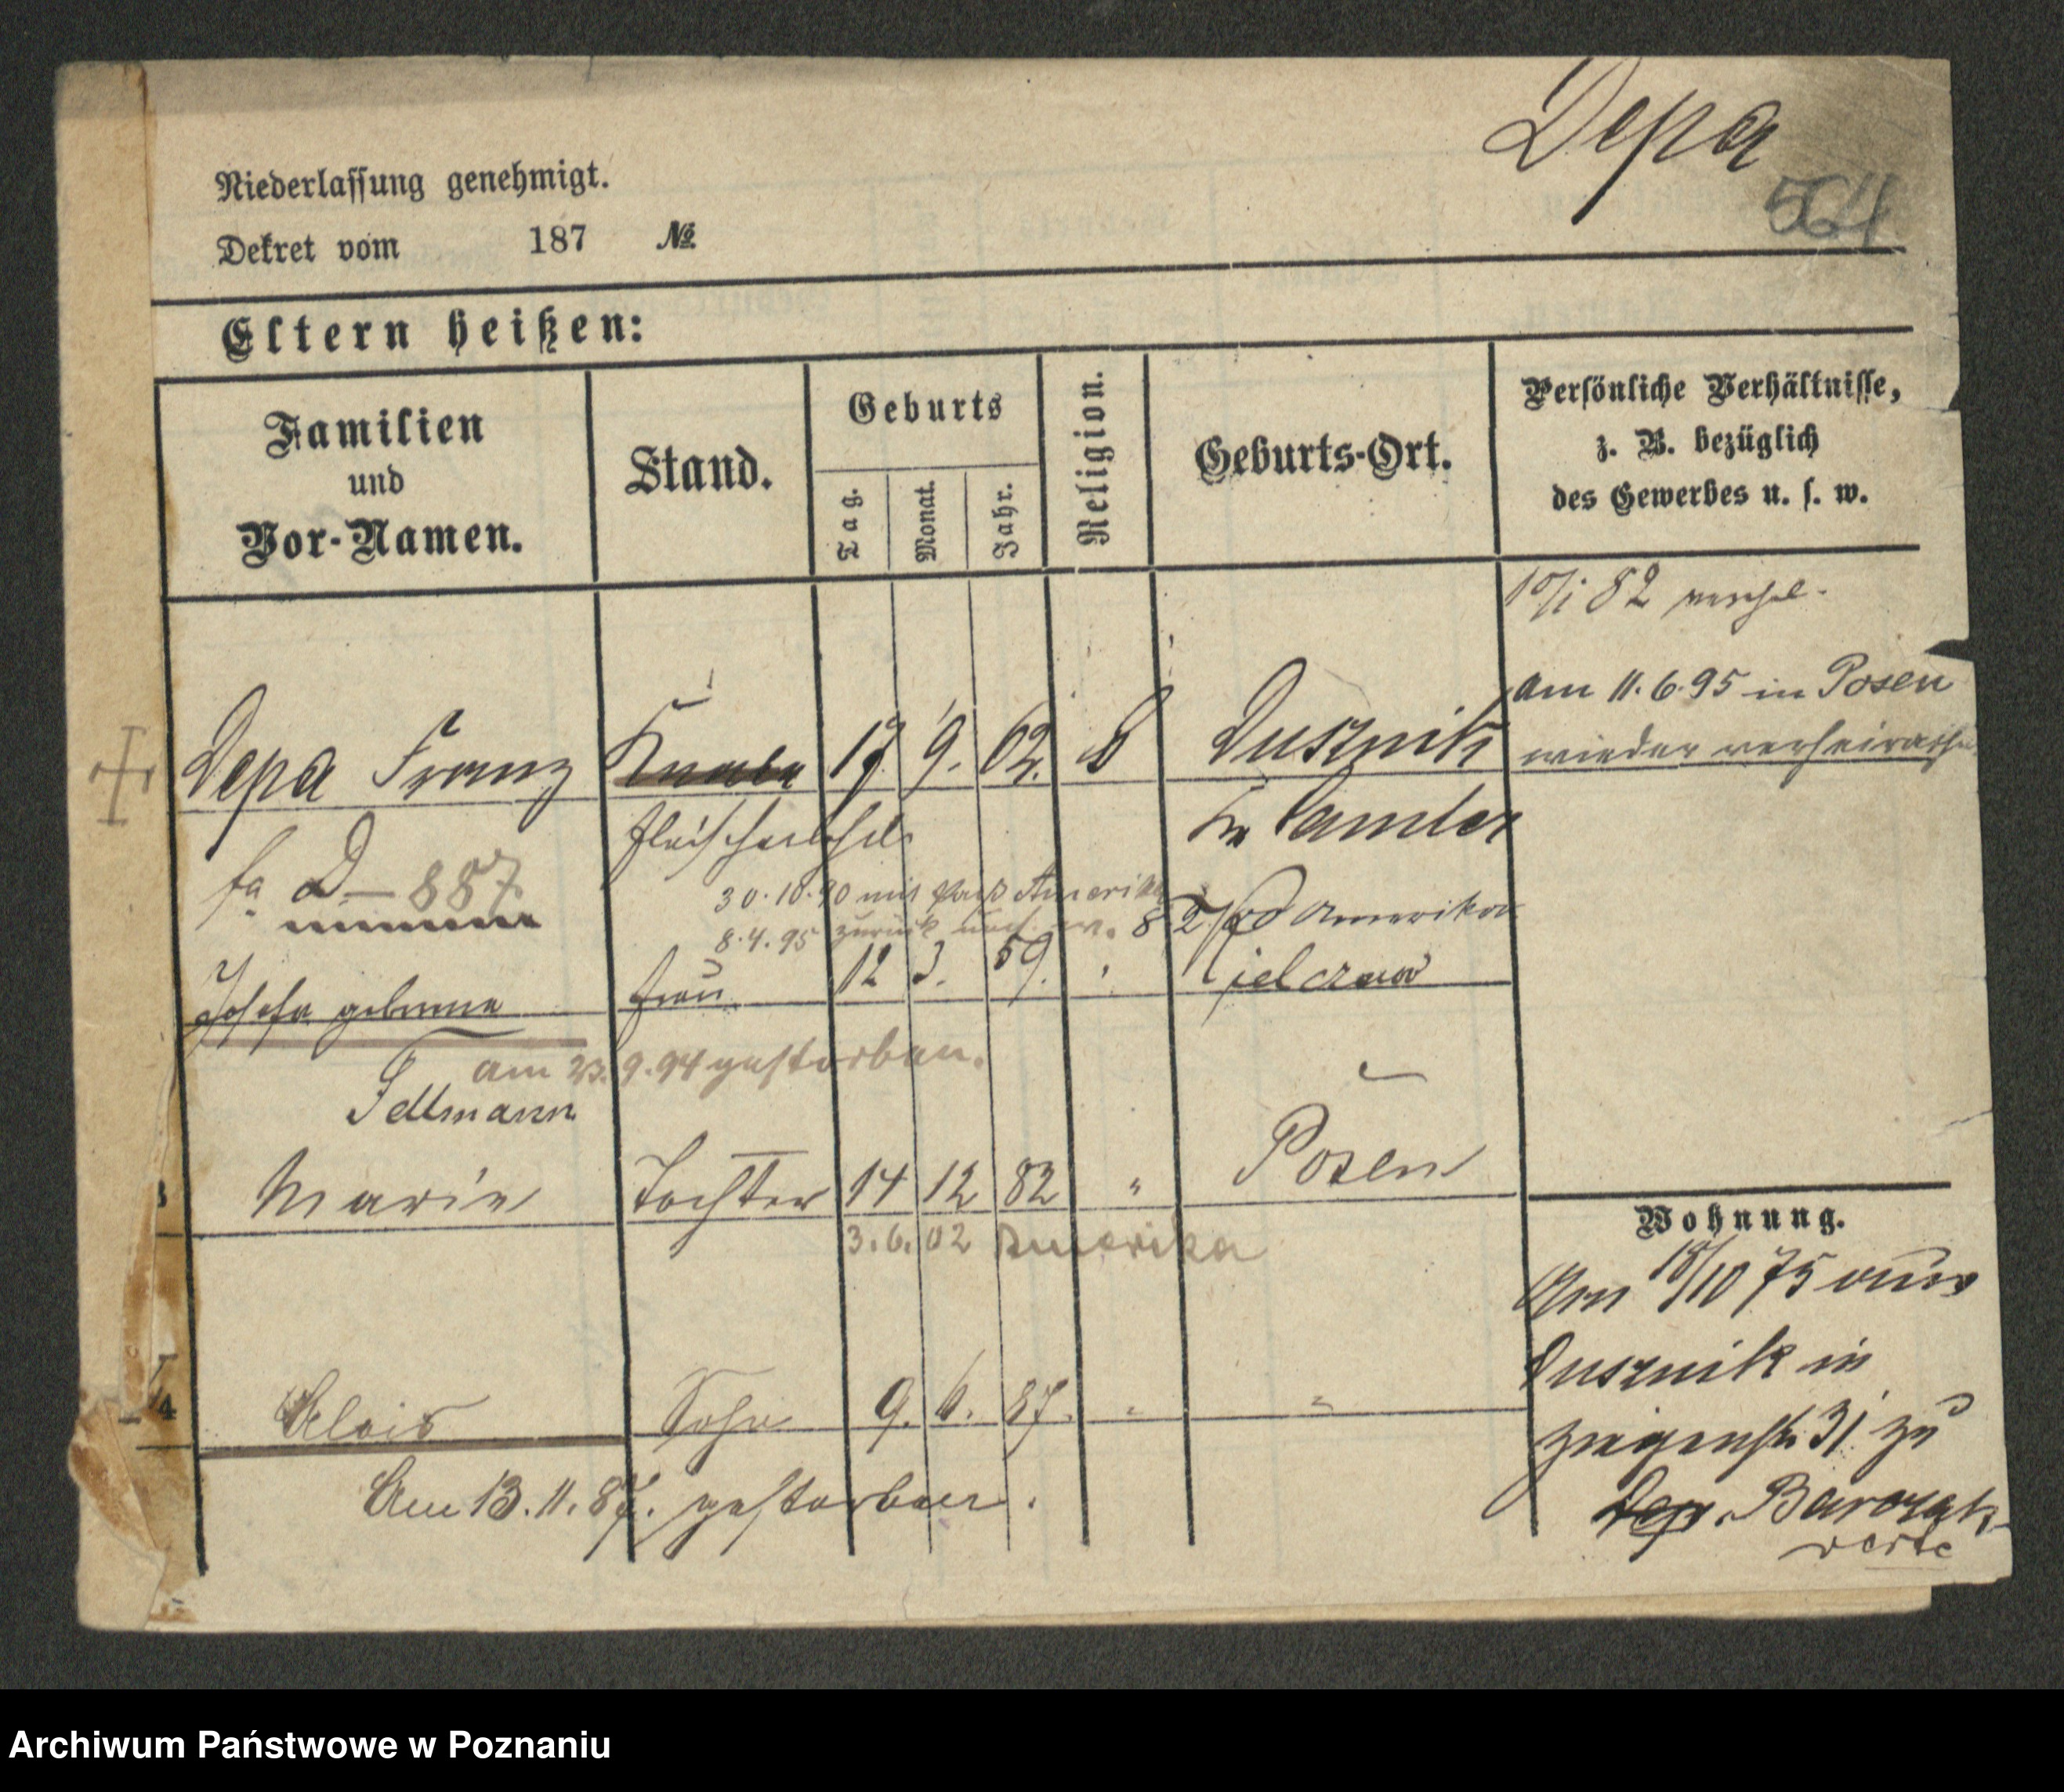 Depa
564
Niederlassung genehmigt.
Dekret vom 187 №
Eltern heißen:
Familien
und
Vor-Namen.
Stand.
Geburts
Tag.
Monat.
Jahr.
Religion.
Geburts-Ort.
Persönliche Verhältnisse,
z. B. bezüglich
des Gewerbes u. s. w.
10/1 82 verehel.
am 11.6.95 in Posen
wieder verheirathet
Depa Franz Knabe 17 9. 62. Dusznik
Fleischer Kr Samter
D — 887.
30.10.90 mit Amerika
8.4.95 zurück Amerika
Josefa geborene Frau 12 3. 59.
am 23.9.94 gestorben.
Feldmann
Marie Tochter 14 12 82 " Posen
3.6.02 Amerika
4
Alois Sohn 9. 6. 87. " "
Am 13.11.87. gestorben.
Wohnung.
Am 18/10 75 aus
Dusznik in
Ziegenstr. 31 zu
Barczak
verte
Archiwum Państwowe w Poznaniu